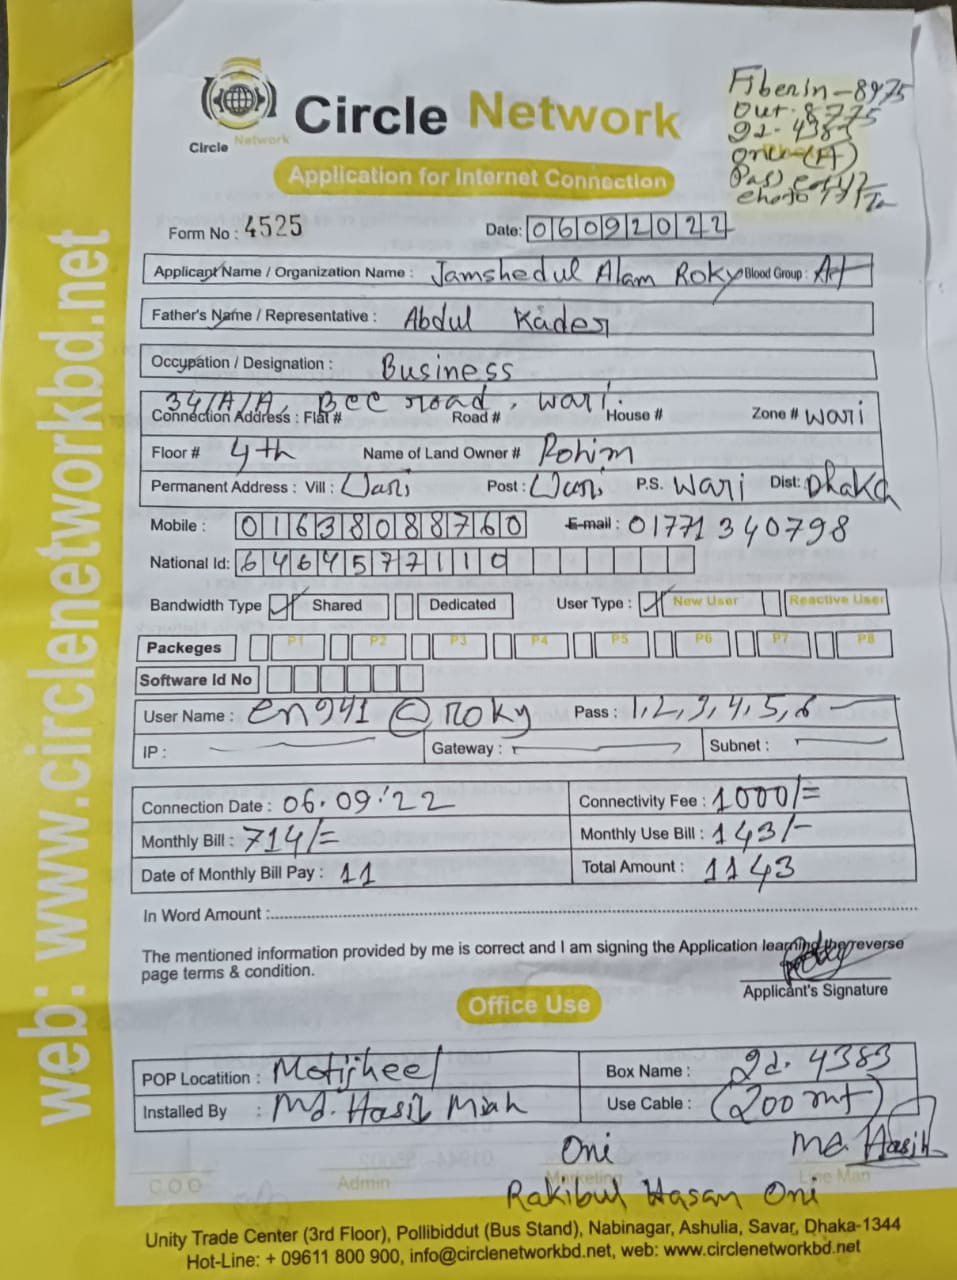 Circle Network
Circle Network
Fiber in - 8975
Out - 8775
gd. 4383
onu
Pass
Application for Internet Connection
Form No : 4525 Date: 06092022
Applicant Name / Organization Name : Jamshedul Alam Roky Blood Group : A+
Father's Name / Representative : Abdul Kader
Occupation / Designation : Business
34/A/A, BCC road, wari.
Connection Address : Flat # Road # House # Zone # wari
Floor # 4th Name of Land Owner # Rohim
Permanent Address : Vill : Wari Post : Wari P.S. Wari Dist: Dhaka
Mobile : 01638088760 E-mail : 01771340798
National Id: 6464577110
Bandwidth Type Shared Dedicated User Type : New User Reactive User
Packeges P1 P2 P3 P4 P5 P6 P7 P8
Software Id No
User Name : en941@roky Pass : 1,2,3,4,5,6
IP : Gateway : Subnet :
Connection Date : 06.09.'22 Connectivity Fee : 1000/=
Monthly Bill : 714/= Monthly Use Bill : 143/-
Date of Monthly Bill Pay : 11 Total Amount : 1143
In Word Amount :
The mentioned information provided by me is correct and I am signing the Application learning the reverse
page terms & condition.
Applicant's Signature
Office Use
POP Locatition : Motijheel Box Name : gd. 4383
Installed By : Md. Hasib Miah Use Cable : (200 mt)
Oni Md. Hasib
C.O.O Admin Marketing Line Man
Rakibul Hasan Oni
Unity Trade Center (3rd Floor), Pollibiddut (Bus Stand), Nabinagar, Ashulia, Savar, Dhaka-1344
Hot-Line: + 09611 800 900, info@circlenetworkbd.net, web: www.circlenetworkbd.net
web: www.circlenetworkbd.net